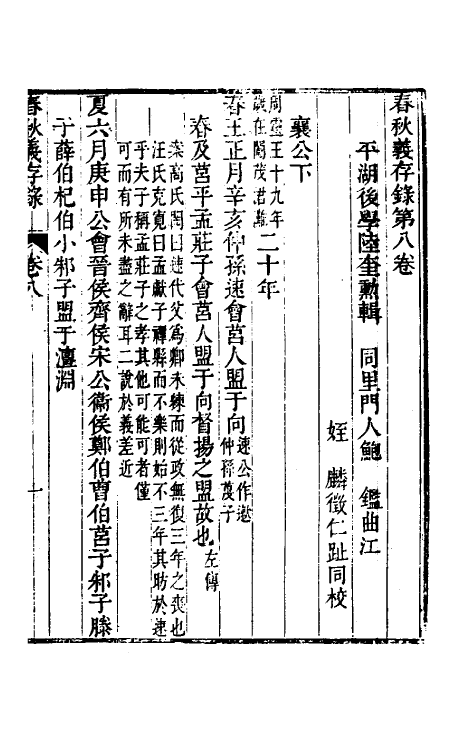 春秋義存錄第八卷
平湖後學陸奎勳輯　同里門人鮑　鑑曲江
姪　麟徵仁趾同校
襄公下
周靈王十九年
歲在閼茂君
二十年
春王正月辛亥仲孫速會莒人盟于向
速公作遬
仲孫蔑子
春及莒平孟莊子會莒人盟于向督揚之盟故也
左傳
案高氏閌曰速代父為卿未練而從政無復三年之喪也
汪氏克寬曰孟獻子禫縣而不樂則始不三年其昉於速
乎夫子稱孟莊子之孝其他可能可者僅
可而有所未盡之辭耳二說於義差近
夏六月庚申公會晉侯齊侯宋公衞侯鄭伯曹伯莒子邾子滕
子薛伯杞伯小邾子盟于澶淵
春秋義存錄
卷八
一